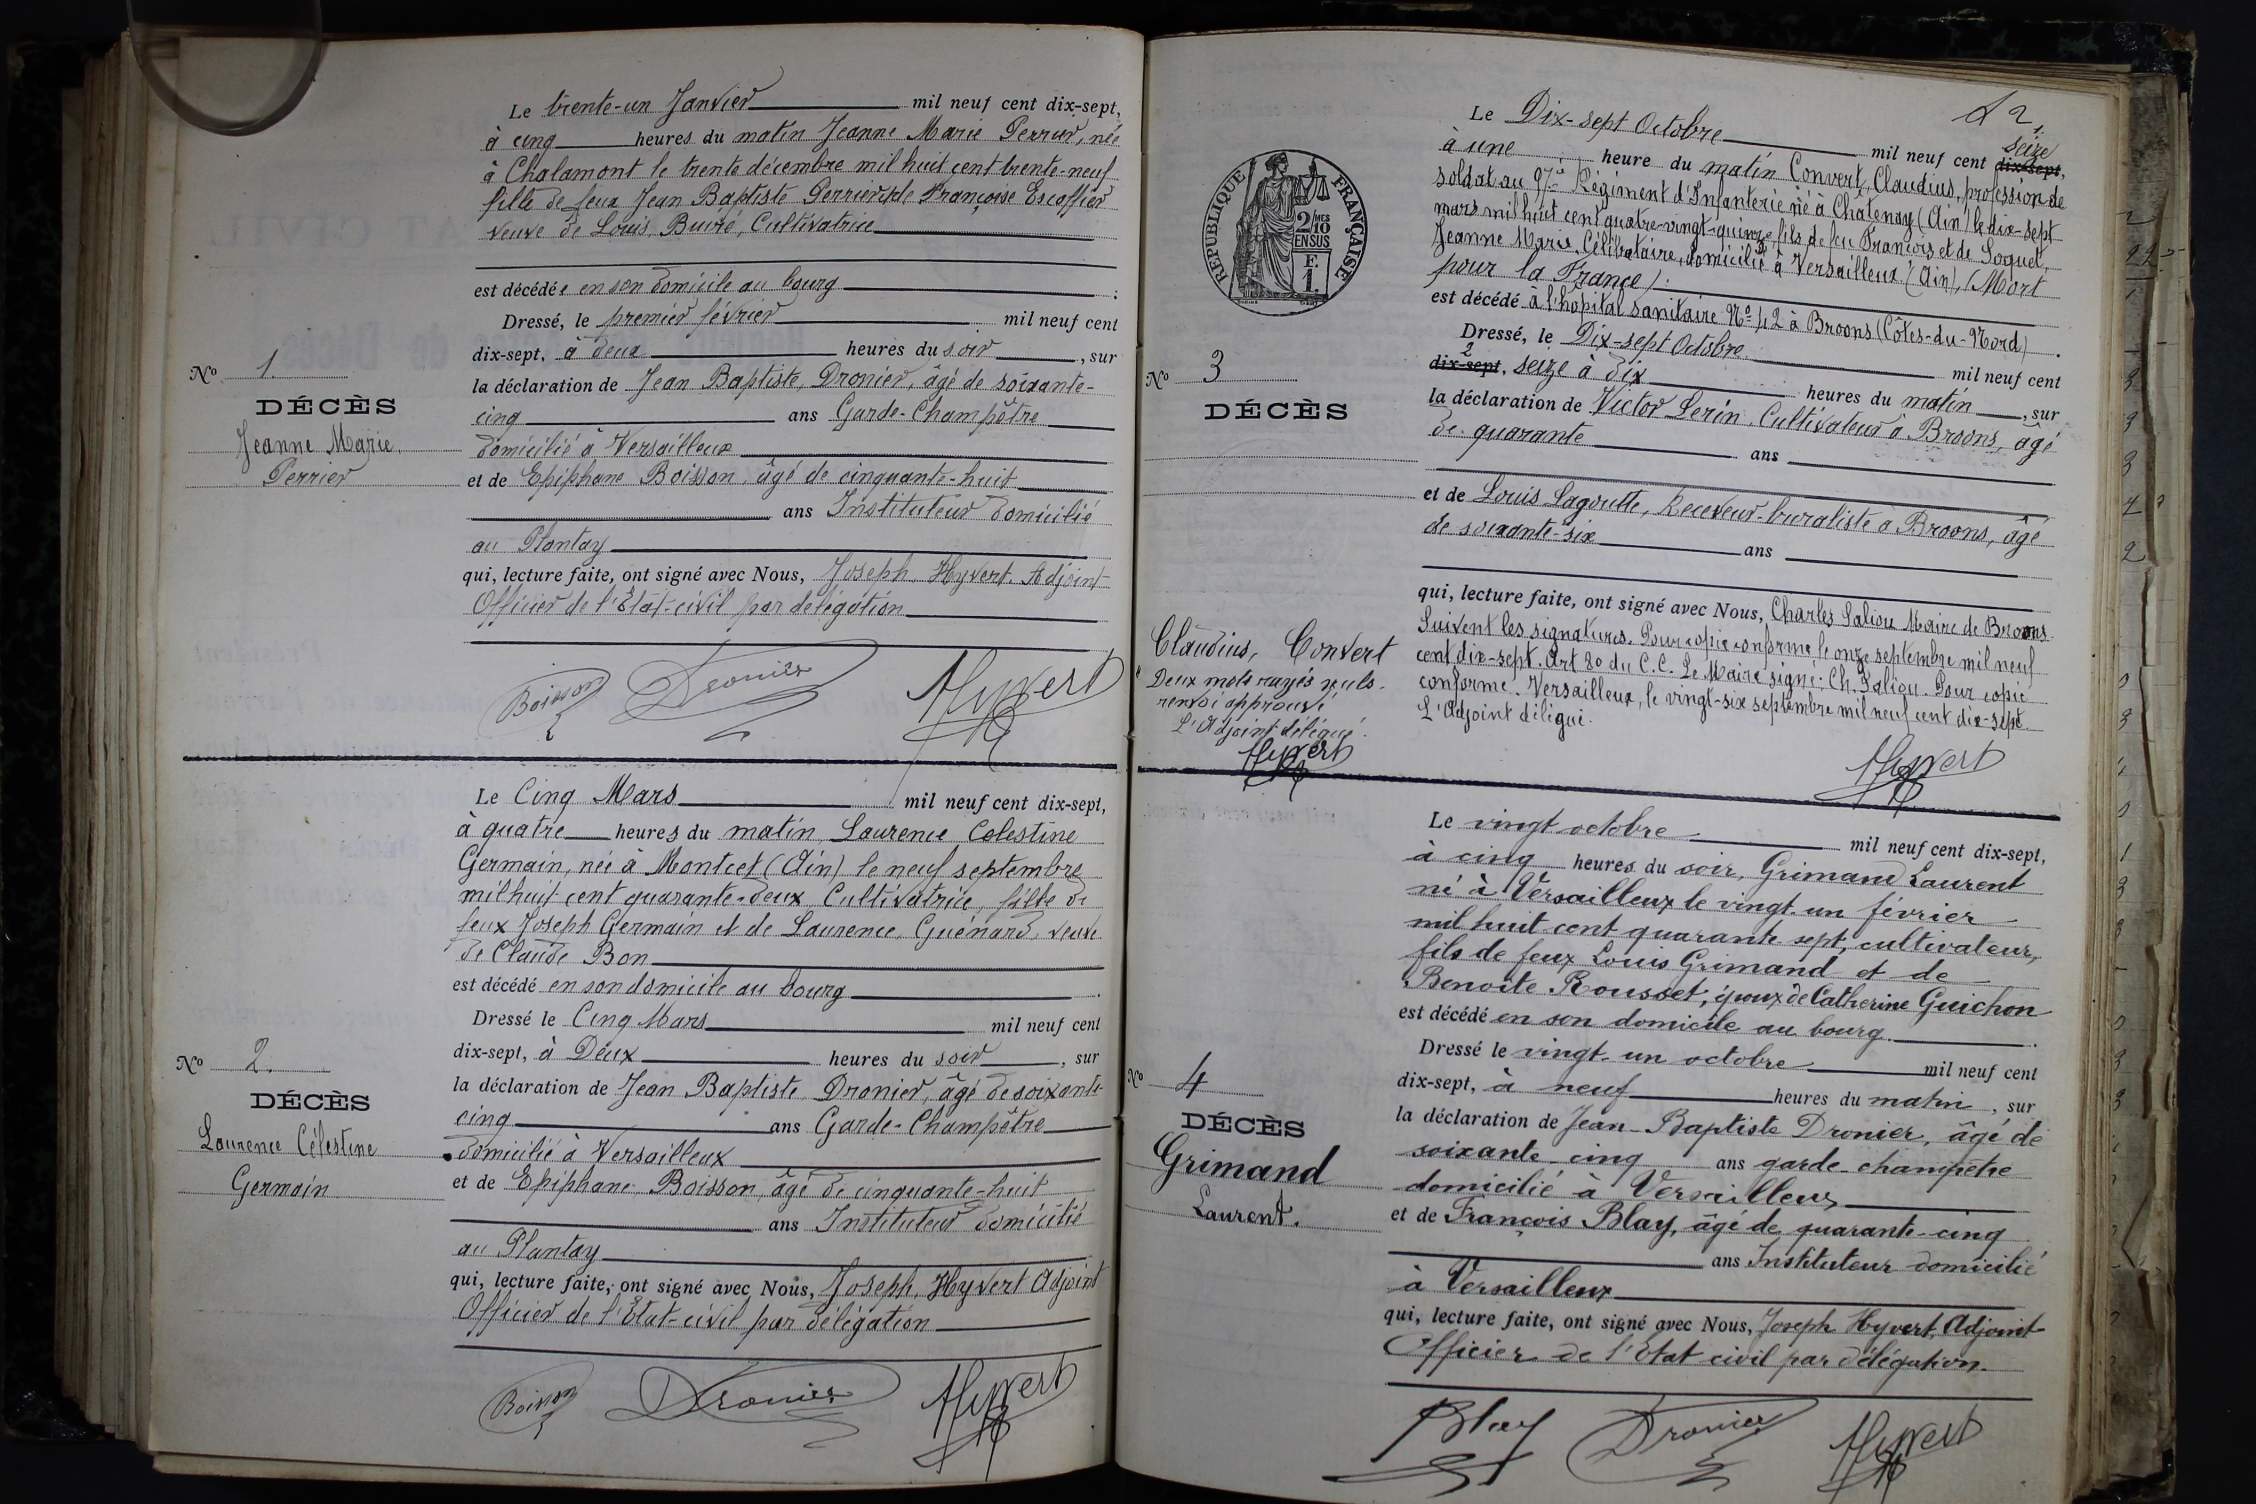 Le trente-un Janvier mil neuf cent dix-sept,
à cinq heures du matin Jeanne Marie Perrier, née
à Chalamont le trente décembre mil huit cent trente-neuf
fille de feux Jean Baptiste Perrier et de Françoise Escoffier
veuve de Louis Buiré, Cultivatrice
est décédée en son domicile au bourg ;
Dressé, le premier février mil neuf cent
dix-sept, à deux heures du soir, sur
la déclaration de Jean Baptiste Dronier, âgé de soixante-
cinq ans Garde-Champêtre
domicilié à Versailleux
et de Epiphane Boisson, âgé de cinquante-huit
ans Instituteur domicilié
au Plantay
qui, lecture faite, ont signé avec Nous, Joseph Hyvert Adjoint
Officier de l'Etat-civil par délégation
Boisson Dronier Hyvert
No 1.
DÉCÈS
Jeanne Marie
Perrier
Le Cinq Mars mil neuf cent dix-sept,
à quatre heures du matin Laurence Celestine
Germain, née à Montcet (Ain) le neuf septembre
mil huit cent quarante-deux Cultivatrice, fille de
feux Joseph Germain et de Laurence Guénard, veuve
de Claude Bon
est décédé en son domicile au bourg .
Dressé le Cinq Mars mil neuf cent
dix-sept, à Deux heures du soir, sur
la déclaration de Jean Baptiste Dronier, âgé de soixante-
cinq ans Garde-Champêtre
domicilié à Versailleux
et de Epiphane Boisson, âgé de cinquante-huit
ans Instituteur domicilié
au Plantay
qui, lecture faite, ont signé avec Nous, Joseph Hyvert Adjoint
Officier de l'Etat-civil par délégation
Boisson Dronier Hyvert
No 2.
DÉCÈS
Laurence Célestine
Germain
2
RÉPUBLIQUE FRANÇAISE
2/10 MES
EN SUS
F.
1.
Le Dix-sept Octobre mil neuf cent dix-sept, seize
à une heure du matin Convert, Claudius, profession de
soldat au 97e Régiment d'Infanterie né à Châtenay (Ain) le dix-sept
mars mil huit cent quatre-vingt-quinze fils de feu François et de Soquet,
Jeanne Marie, Célibataire, domicilié à Versailleux (Ain), (Mort
pour la France).
est décédé à l'hopital sanitaire No 42 à Broons (Côtes-du-Nord) .
Dressé, le Dix-sept Octobre mil neuf cent
dix-sept, seize à dix heures du matin, sur
la déclaration de Victor Serin, Cultivateur à Broons, âgé
de quarante ans
et de Louis Lagoutte, Receveur-buraliste à Broons, âgé
de soixante-six ans
qui, lecture faite, ont signé avec Nous, Charles Saliou Maire de Broons.
Suivent les signatures. Pour copie conforme le onze septembre mil neuf
cent dix-sept. Art 80 du C.C. Le Maire signé: Ch. Saliou. Pour copie
conforme. Versailleux, le vingt-six septembre mil neuf cent dix-sept
L'Adjoint délégué.
Hyvert
No 3
DÉCÈS
Claudius, Convert
Deux mots rayés nuls.
renvoi approuvé
L'Adjoint délégué.
Hyvert
Le vingt octobre mil neuf cent dix-sept,
à cinq heures du soir, Grimand Laurent
né à Versailleux le vingt-un février
mil huit cent quarante-sept, cultivateur,
fils de feux Louis Grimand et de
Benoite Rousset, époux de Catherine Guichon
est décédé en son domicile au bourg .
Dressé le vingt-un octobre mil neuf cent
dix-sept, à neuf heures du matin, sur
la déclaration de Jean-Baptiste Dronier, âgé de
soixante-cinq ans garde-champêtre
domicilié à Versailleux
et de François Blay, âgé de quarante-cinq
ans Instituteur domicilié
à Versailleux
qui, lecture faite, ont signé avec Nous, Joseph Hyvert, Adjoint
Officier de l'Etat civil par délégation.
Blay Dronier Hyvert
No 4
DÉCÈS
Grimand
Laurent.